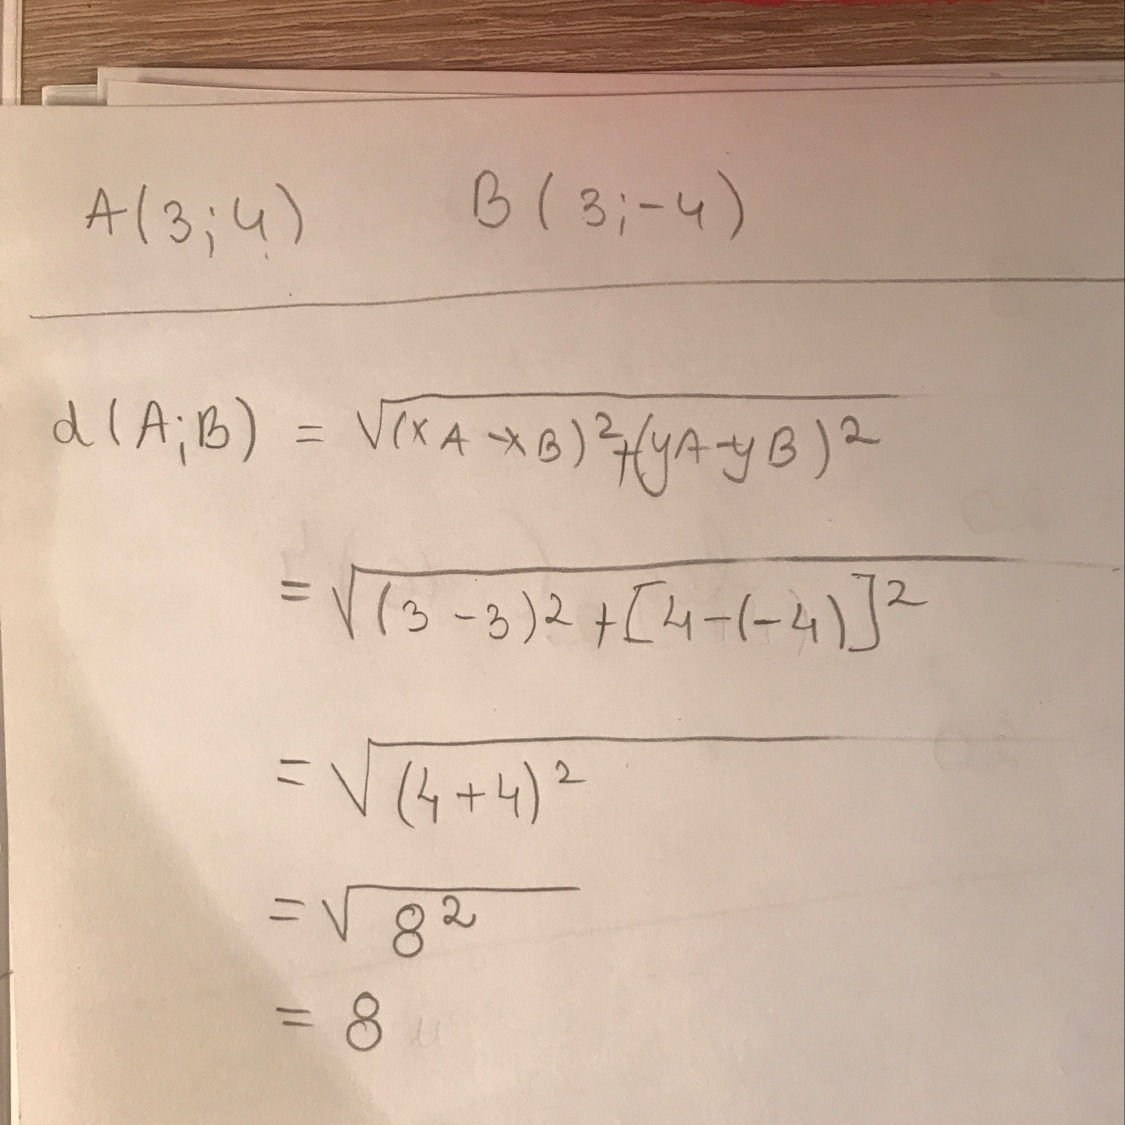 A(3;4) B(3;-4)
d(A;B) = √(xA-xB)²+(yA-yB)²
= √(3-3)²+[4-(-4)]²
= √(4+4)²
= √8²
= 8